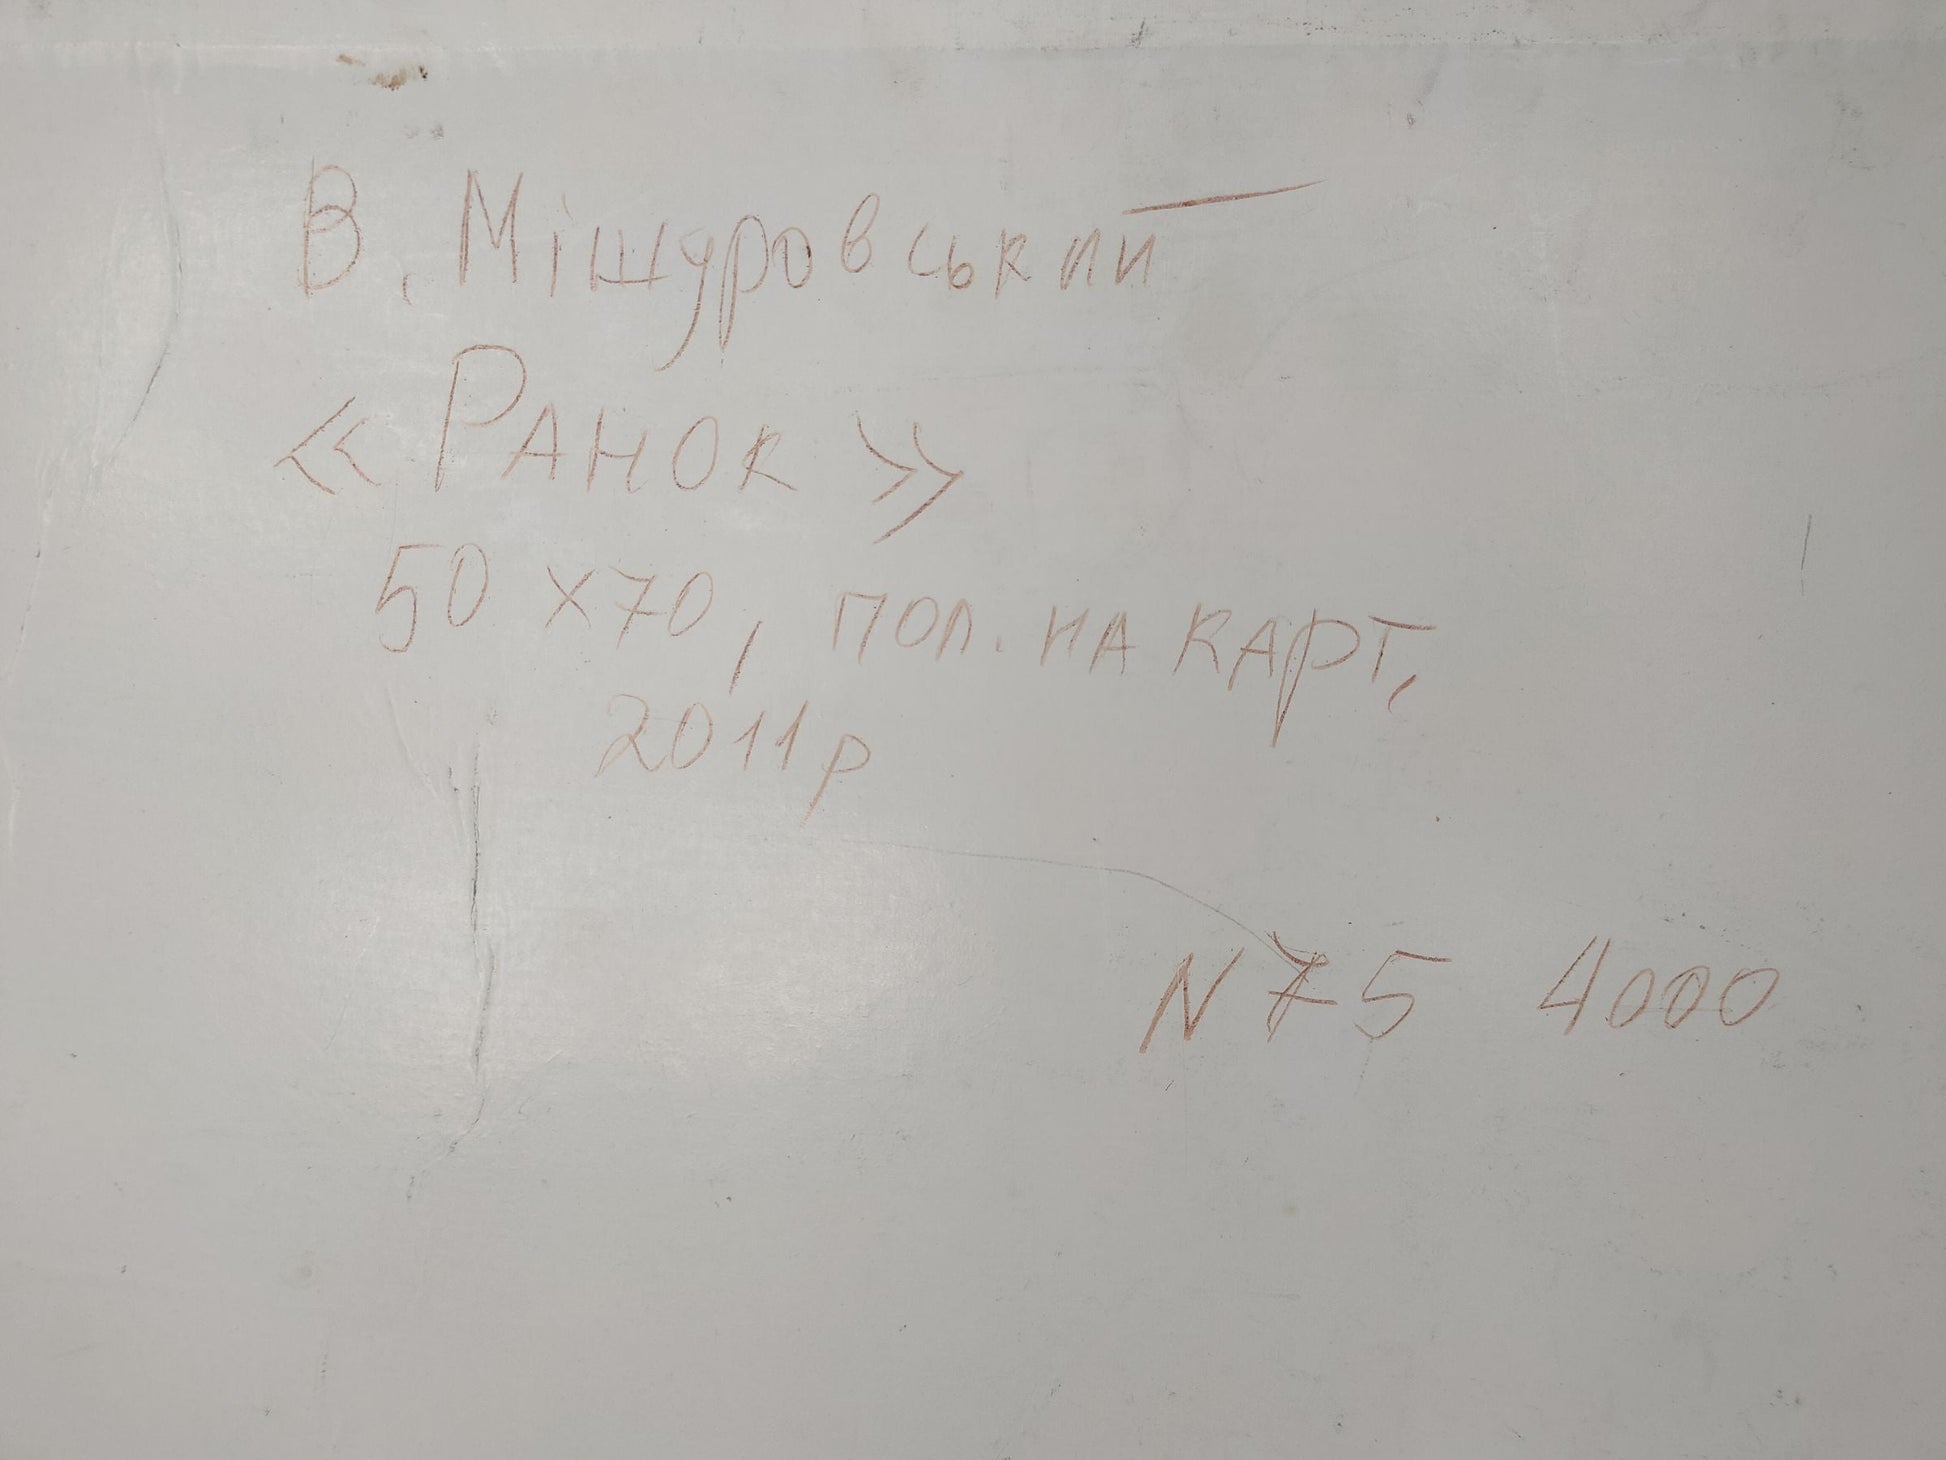 В. Мішуровський
«Ранок»
50 х 70, пол. на карт,
2011р
N75 4000